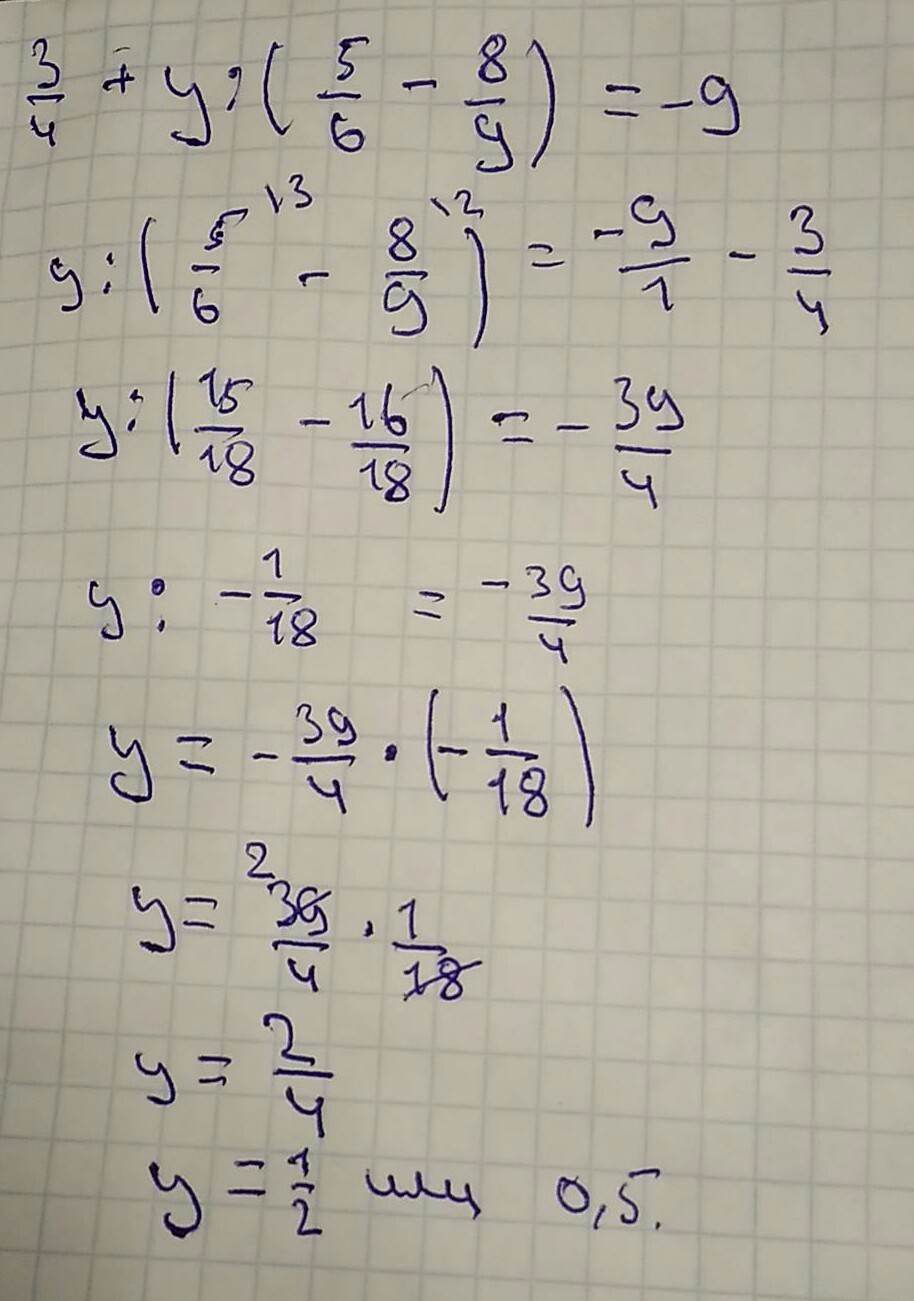 3/4 + y : (5/6 - 8/9) = -9
y : (5/6 \3 - 8/9 \2) = -9/1 - 3/4
y : (15/18 - 16/18) = - 39/4
y : - 1/18 = - 39/4
y = - 39/4 · (- 1/18)
y = 2 39/4 · 1/18
y = 2/4
y = 1/2 или 0,5.